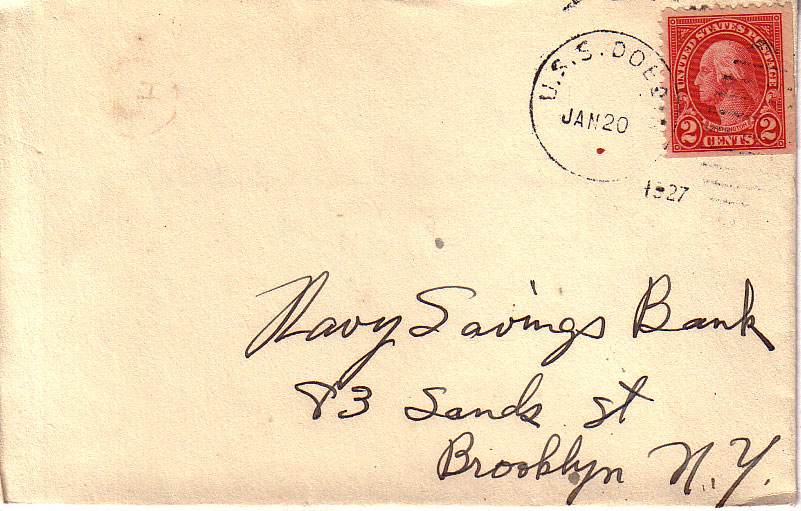 U.S.S. DOE
JAN 20
1927
UNITED STATES POSTAGE
2 CENTS 2
Navy Savings Bank
83 Sands St
Brooklyn N.Y.